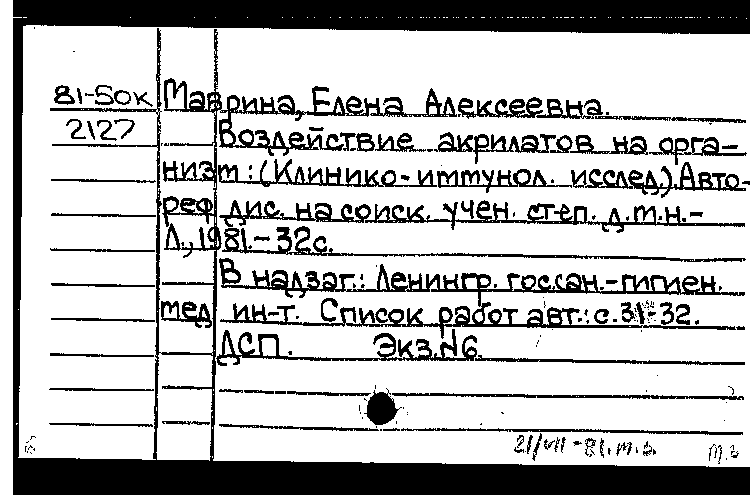 81-50к Маврина, Елена Алексеевна.
2127 Воздействие акрилатов на орга-
низм: (Клинико-иммунол. исслед.). Авто-
реф дис. на соиск. учен. степ. д.м.н.-
Л., 1981.- 32с.
В надзаг.: Ленингр. гос. сан.-гигиен.
мед ин-т. Список работ авт.: с. 31-32.
ДСП. Экз. №6.
21/VII-81. м.в.
м.в